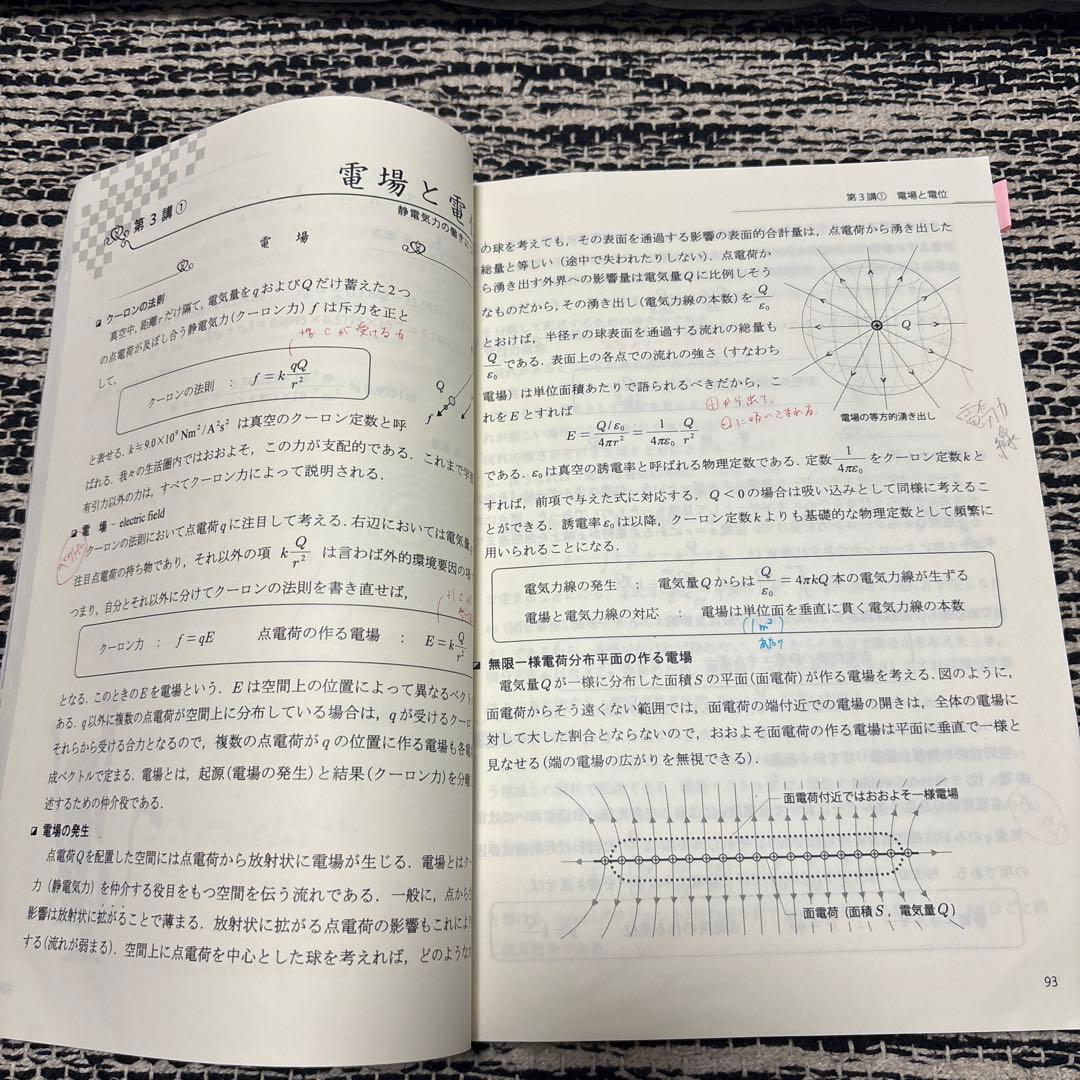 第3講①
電場と電
静電気力の働き
電 場
クーロンの法則
真空中,距離rだけ隔て,電気量をqおよびQだけ蓄えた2つ
の点電荷が及ぼし合う静電気力(クーロン力)fは斥力を正と
して,
+qCが受ける力
クーロンの法則 : f=k qQ/r²
Q
f
と表せる.k≒9.0×10⁹Nm²/A²s²は真空のクーロン定数と呼
ばれる.我々の生活圏内ではおおよそ,この力が支配的である.これまで学
有引力以外の力は,すべてクーロン力によって説明される.
電 場 - electric field
クーロンの法則において点電荷qに注目して考える.右辺においては電気量
注目点電荷の持ち物であり,それ以外の項 k Q/r² は言わば外的環境要因の項
つまり,自分とそれ以外に分けてクーロンの法則を書き直せば,
クーロン力 : f=qE 点電荷の作る電場 : E=k Q/r²
となる.このときのEを電場という.Eは空間上の位置によって異なるベクト
ある.q以外に複数の点電荷が空間上に分布している場合は,qが受けるクーロ
それらから受ける合力となるので,複数の点電荷がqの位置に作る電場も各電
成ベクトルで定まる.電場とは,起源(電場の発生)と結果(クーロン力)を分離
述するための仲介役である.
電場の発生
点電荷Qを配置した空間には点電荷から放射状に電場が生じる.電場とはクー
力(静電気力)を仲介する役目をもつ空間を伝う流れである.一般に,点から
影響は放射状に拡がることで薄まる.放射状に拡がる点電荷の影響もこれによ
する(流れが弱まる).空間上に点電荷を中心とした球を考えれば,どのような
第3講① 電場と電位
の球を考えても,その表面を通過する影響の表面的合計量は,点電荷から湧き出した
総量と等しい(途中で失われたりしない).点電荷か
ら湧き出す外界への影響量は電気量Qに比例しそう
なものだから,その湧き出し(電気力線の本数)を Q/ε₀
とおけば,半径rの球表面を通過する流れの総量も
Q/ε₀ である.表面上の各点での流れの強さ(すなわち
電場)は単位面積あたりで語られるべきだから,こ
れをEとすれば
Q
電場の等方的湧き出し
⊕から出て,
⊖に吸いこまれる.
E = (Q/ε₀)/4πr² = 1/4πε₀ Q/r²
である.ε₀は真空の誘電率と呼ばれる物理定数である.定数 1/4πε₀ をクーロン定数kと
すれば,前項で与えた式に対応する.Q<0の場合は吸い込みとして同様に考えるこ
とができる.誘電率ε₀は以降,クーロン定数kよりも基礎的な物理定数として頻繁に
用いられることになる.
電気力線の発生 : 電気量Qからは Q/ε₀ = 4πkQ 本の電気力線が生ずる
電場と電気力線の対応 : 電場は単位面を垂直に貫く電気力線の本数
(1m²)
あたり
無限一様電荷分布平面の作る電場
電気量Qが一様に分布した面積Sの平面(面電荷)が作る電場を考える.図のように,
面電荷からそう遠くない範囲では,面電荷の端付近での電場の開きは,全体の電場に
対して大した割合とならないので,おおよそ面電荷の作る電場は平面に垂直で一様と
見なせる(端の電場の広がりを無視できる).
面電荷付近ではおおよそ一様電場
面電荷(面積S,電気量Q)
93